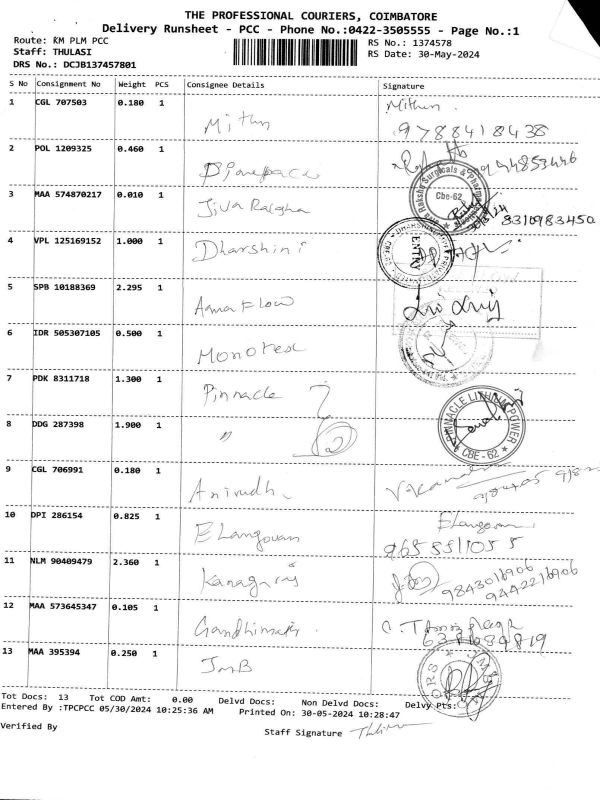 THE PROFESSIONAL COURIERS, COIMBATORE
Delivery Runsheet - PCC - Phone No.:0422-3505555 - Page No.:1
Route: KM PLM PCC
RS No.: 1374578
Staff: THULASI
RS Date: 30-May-2024
DRS No.: DCJB137457801
S No Consignment No Weight PCS Consignee Details Signature
1 CGL 707503 0.180 1 Mithun Mithun.
9788418438
2 POL 1209325 0.460 1
Raksha Surgicals & Pharma
Cbe-62
3 MAA 574870217 0.010 1 Jiva Raksha 8310983450
4 VPL 125169152 1.000 1 Dharshini
ENTRY
5 SPB 10188369 2.295 1 Aqua Flow
6 IDR 505307105 0.500 1 Monotex
7 PDK 8311718 1.300 1 Pinnacle
PINNACLE LITHIUM POWER
CBE - 62
8 DDG 287398 1.900 1 "
2
9 CGL 706991 0.180 1 Anirudh
10 DPI 286154 0.825 1 Elangovan Elangovan
9655511055
11 NLM 90409479 2.360 1 Kanagaraj 9843016906
9442216906
12 MAA 573645347 0.105 1
13 MAA 395394 0.250 1 JMB
JMB
Tot Docs: 13 Tot COD Amt: 0.00 Delvd Docs: Non Delvd Docs: Delvy Pts:
Entered By :TPCPCC 05/30/2024 10:25:36 AM Printed On: 30-05-2024 10:28:47
Verified By
Staff Signature